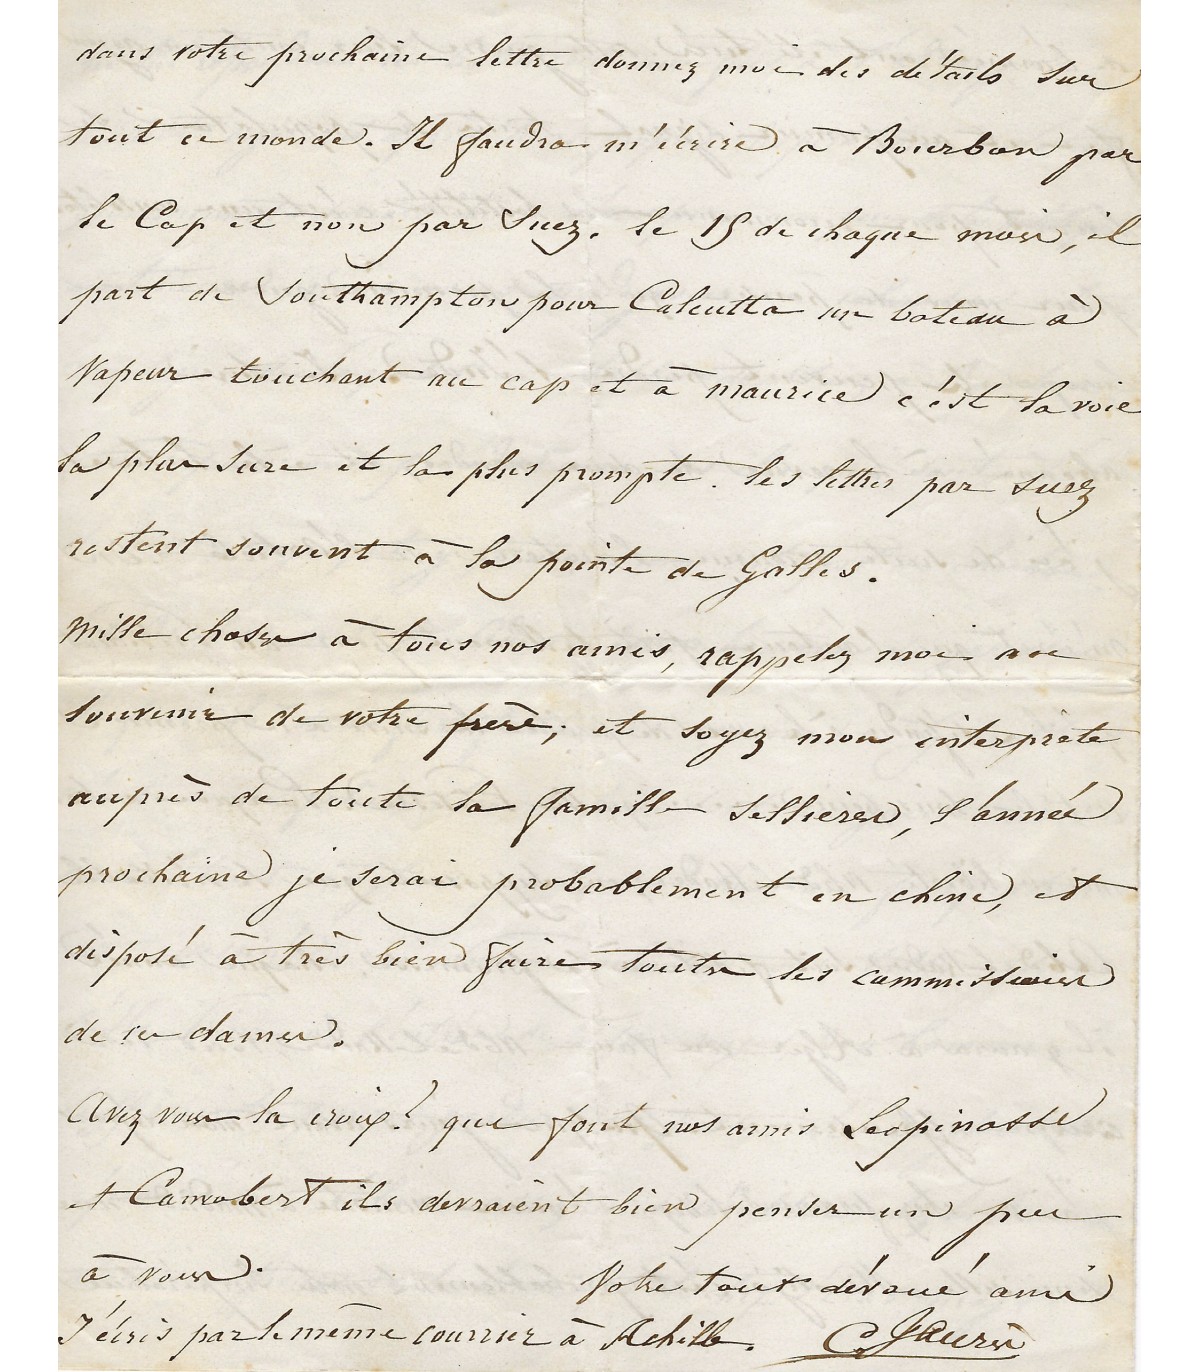 dans votre prochaine lettre donnez moi des détails sur
tout ce monde. Il faudra m'écrire à Bourbon par
le Cap et non par Suez. le 15 de chaque mois, il
part de Southampton pour Calcutta un bateau à
vapeur touchant au cap et à maurice c'est la voie
la plus sure et la plus prompte. les lettres par suez
restent souvent à la pointe de Galles.
Mille choses à tous nos amis, rappelez moi au
souvenir de votre frère; et soyez mon interprète
auprès de toute la famille Sellières, l'année
prochaine je serai probablement en chine, et
disposé à très bien faire toutes les commissions
de ces dames.
Avez vous la croix? que font nos amis Lespinasse
et Canrobert ils devraient bien penser un peu
à vous.
Votre tout dévoué ami
J'écris par le même courrier à Achille. C. Jaurès